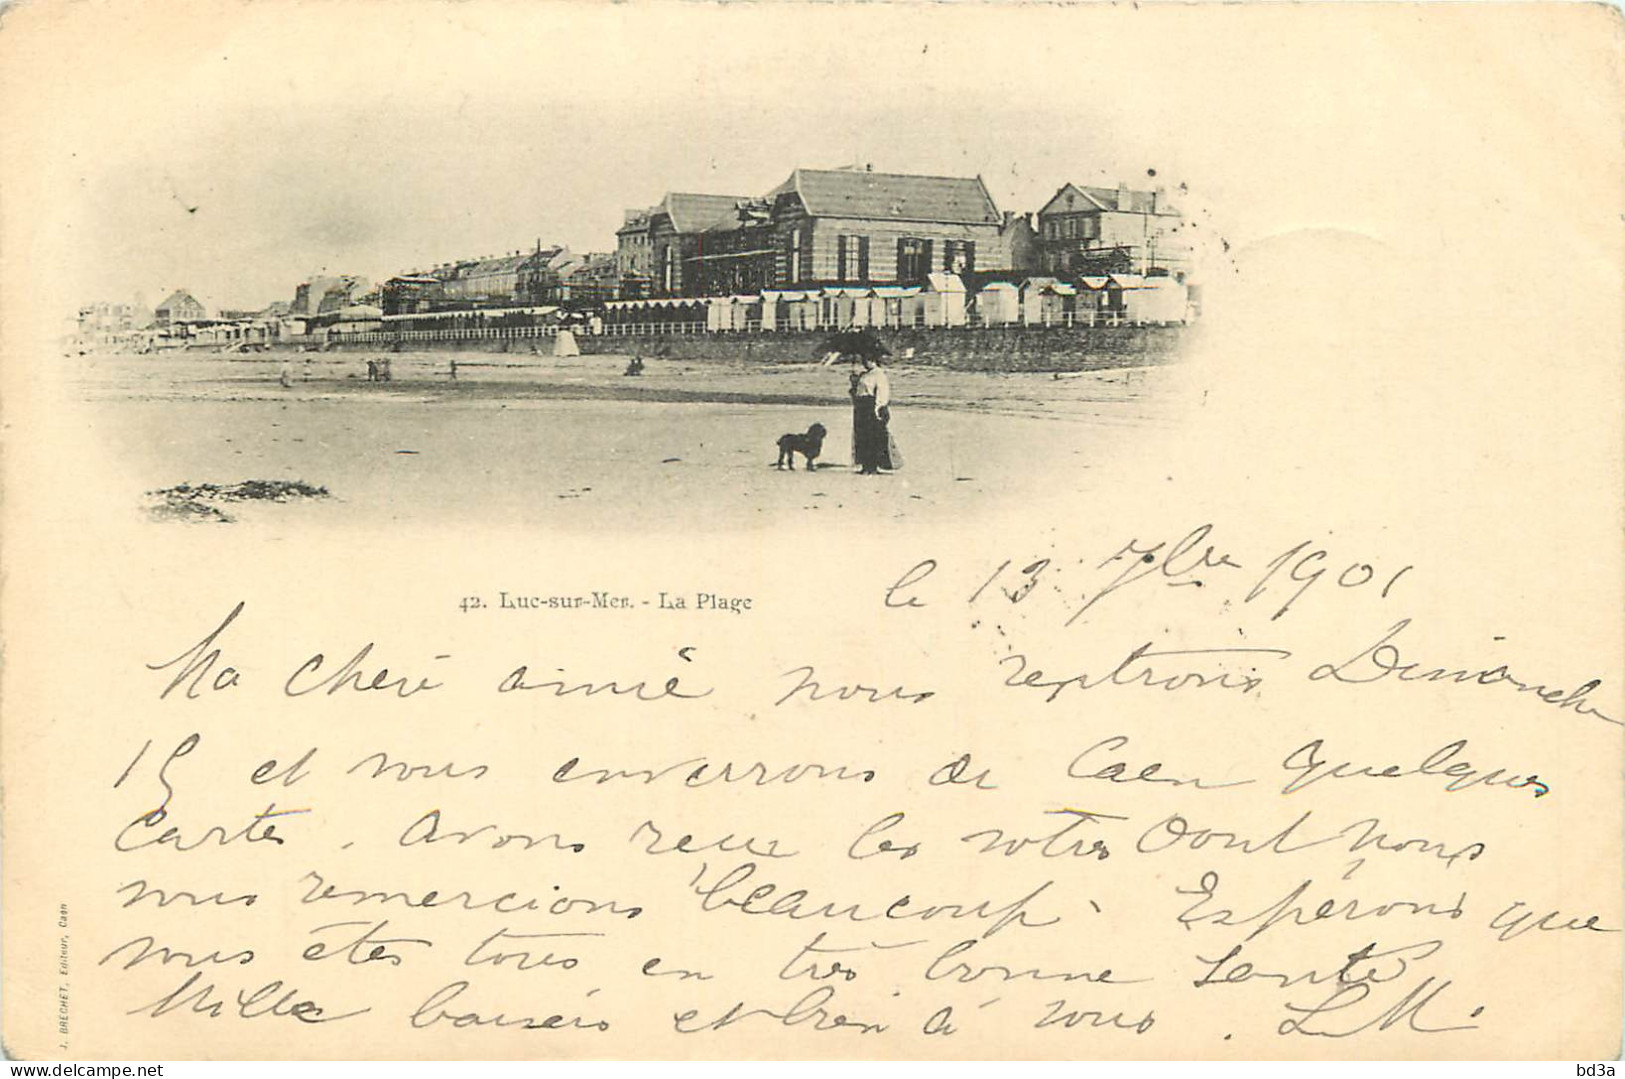 le 13 7bre 1901
42. Luc-sur-Mer. - La Plage
Ma cheré aimé nous rentrons Dimanche
15 et vous enverrons de Caen quelques
Cartes. avons recu les votres Dont nous
vous remercions beaucoup. Espérons que
vous êtes tous en très bonne santé
Mille baisers et bien à vous. LM.
J. BRÉCHET, Editeur, Caen
www.delcampe.net
bd3a